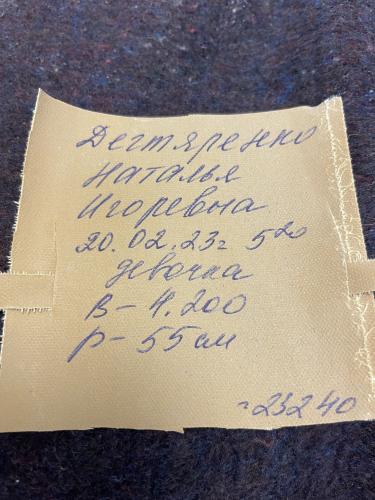 Дегтяренко
Наталья
Игоревна
20.02.23г 5 20
девочка
в - 4.200
р - 55 см
23240